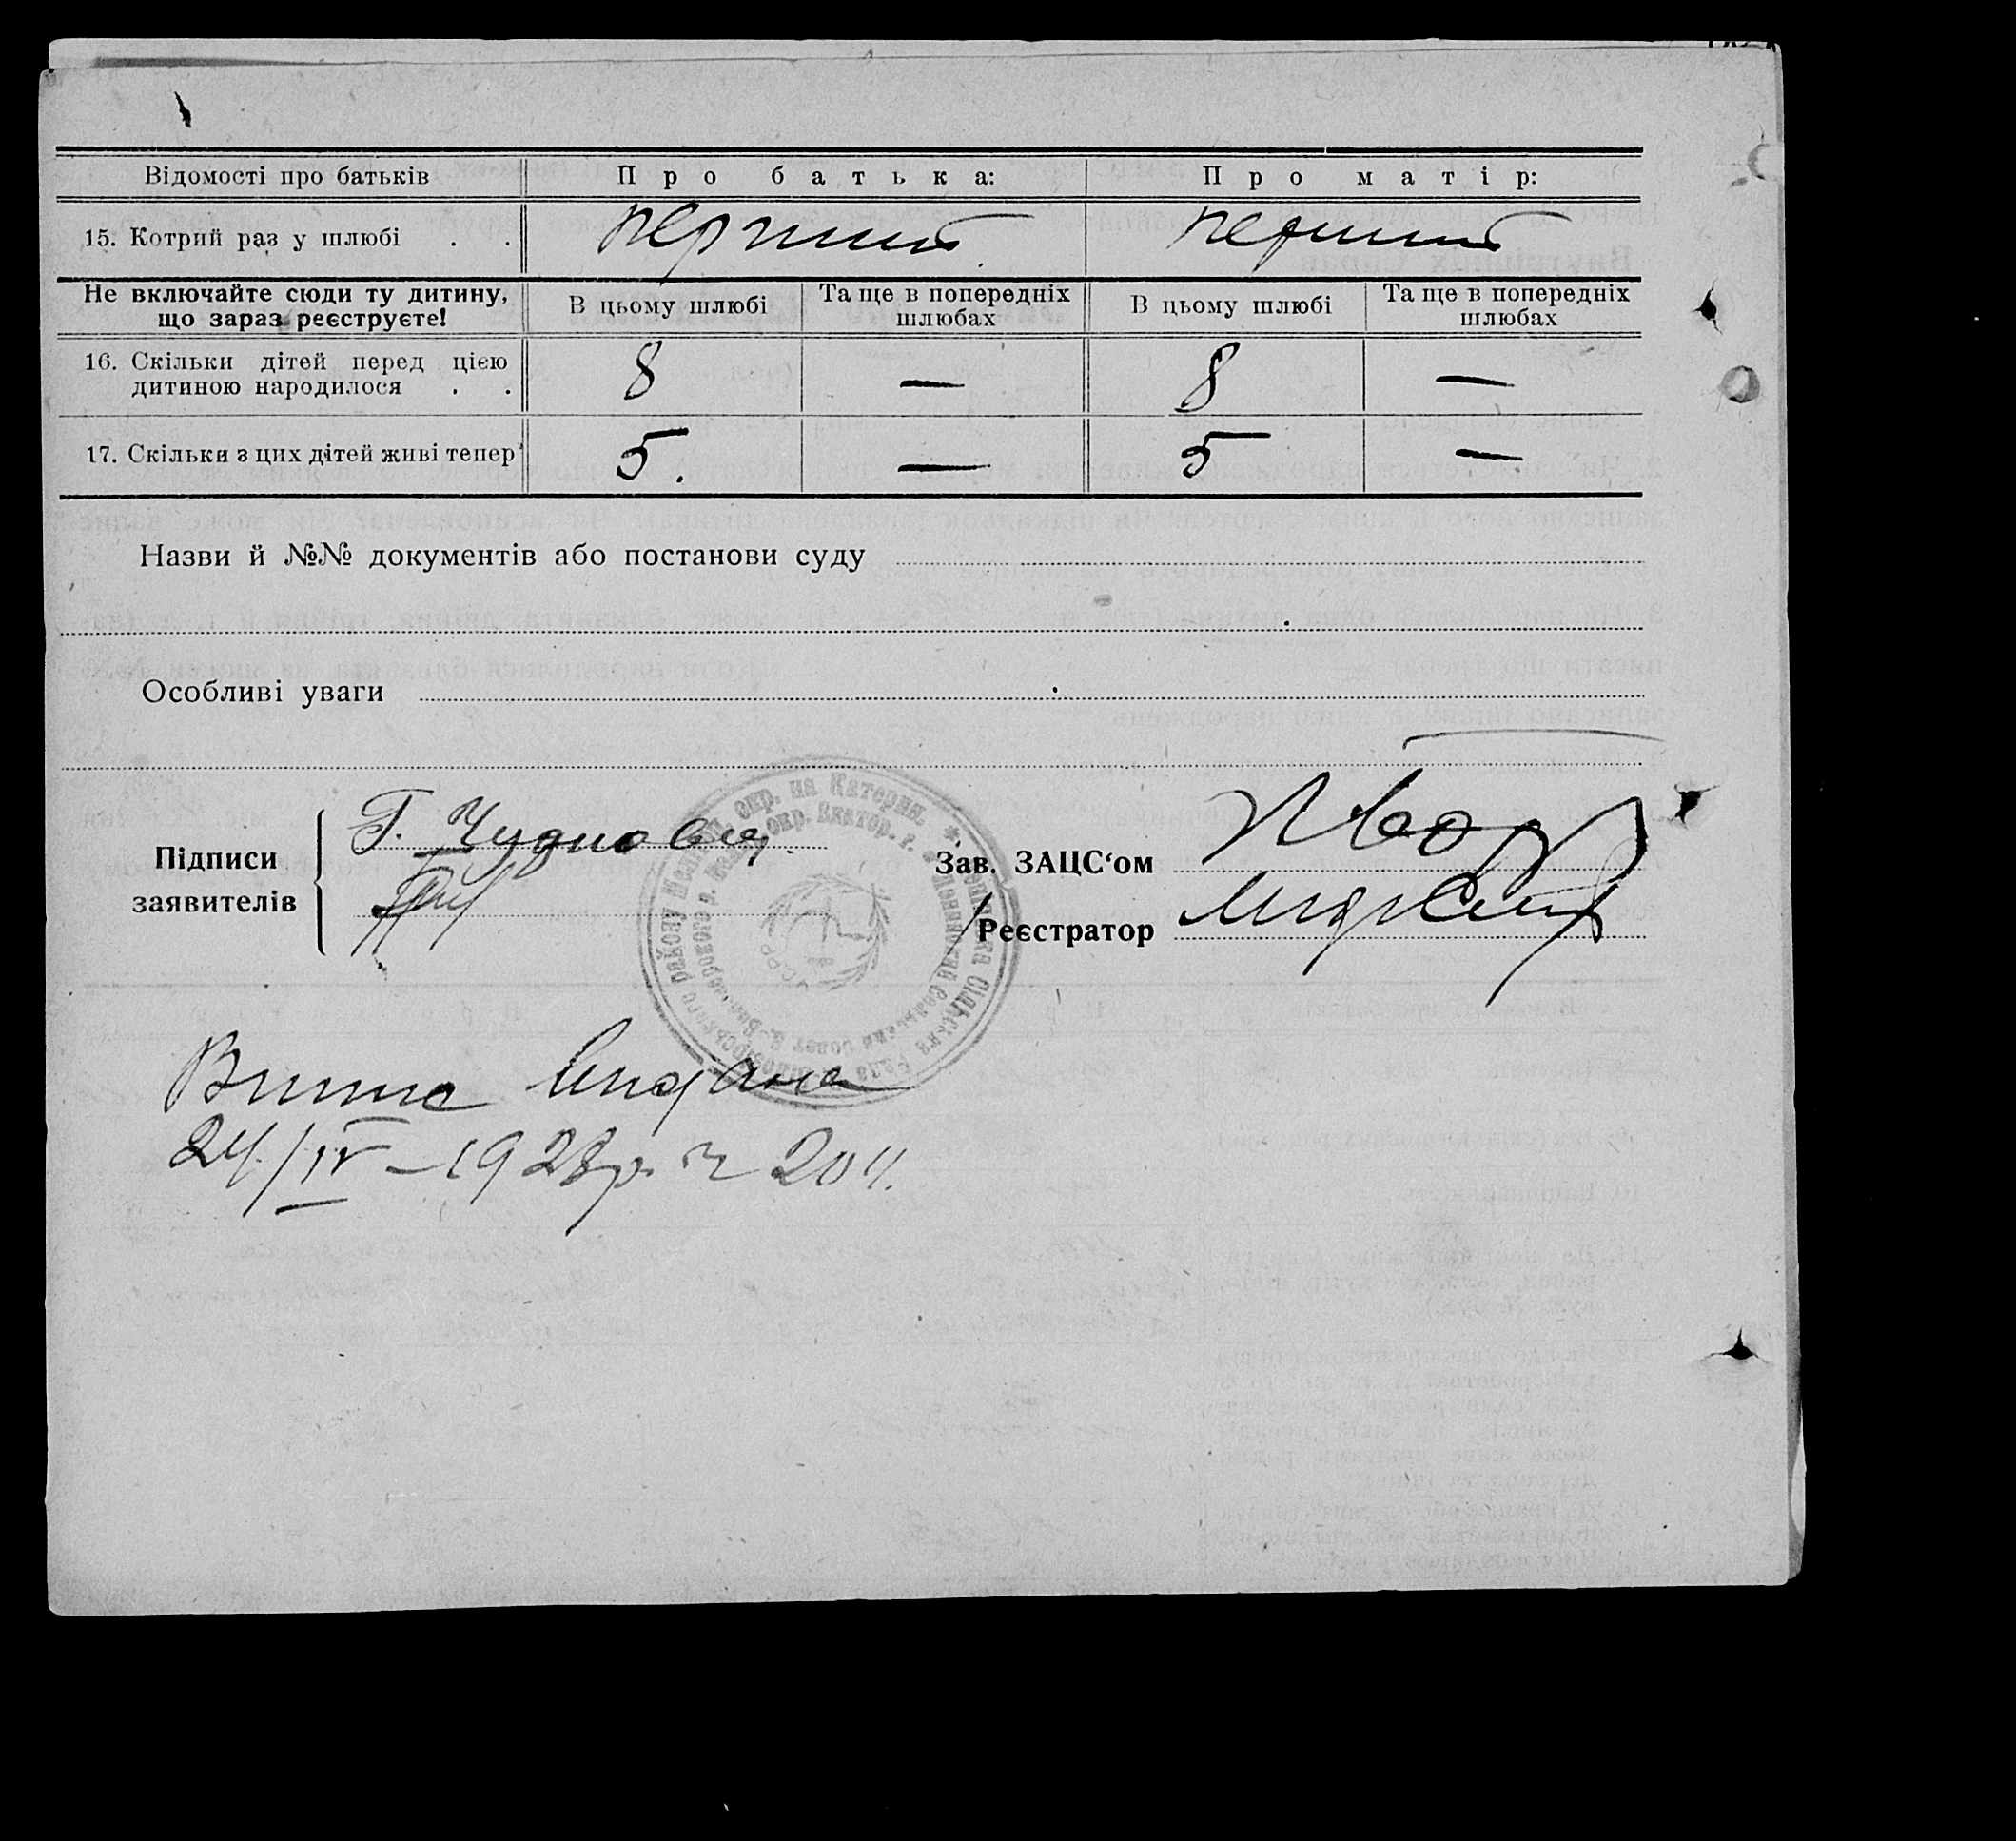 Відомості про батьків Про батька: Про матір:
15. Котрий раз у шлюбі . . перший перший
Не включайте сюди ту дитину, що зараз реєструєте! В цьому шлюбі Та ще в попередніх шлюбах В цьому шлюбі Та ще в попередніх шлюбах
16. Скільки дітей перед цією
дитиною народилося . . 8 — 8 —
17. Скільки з цих дітей живі тепер 5. — 5 —
Назви й №№ документів або постанови суду
Особливі уваги
Підписи
заявителів
Г.
Зав. ЗАЦС‘ом
Реєстратор
Випис видана
24/IV–1928р. ч 204.